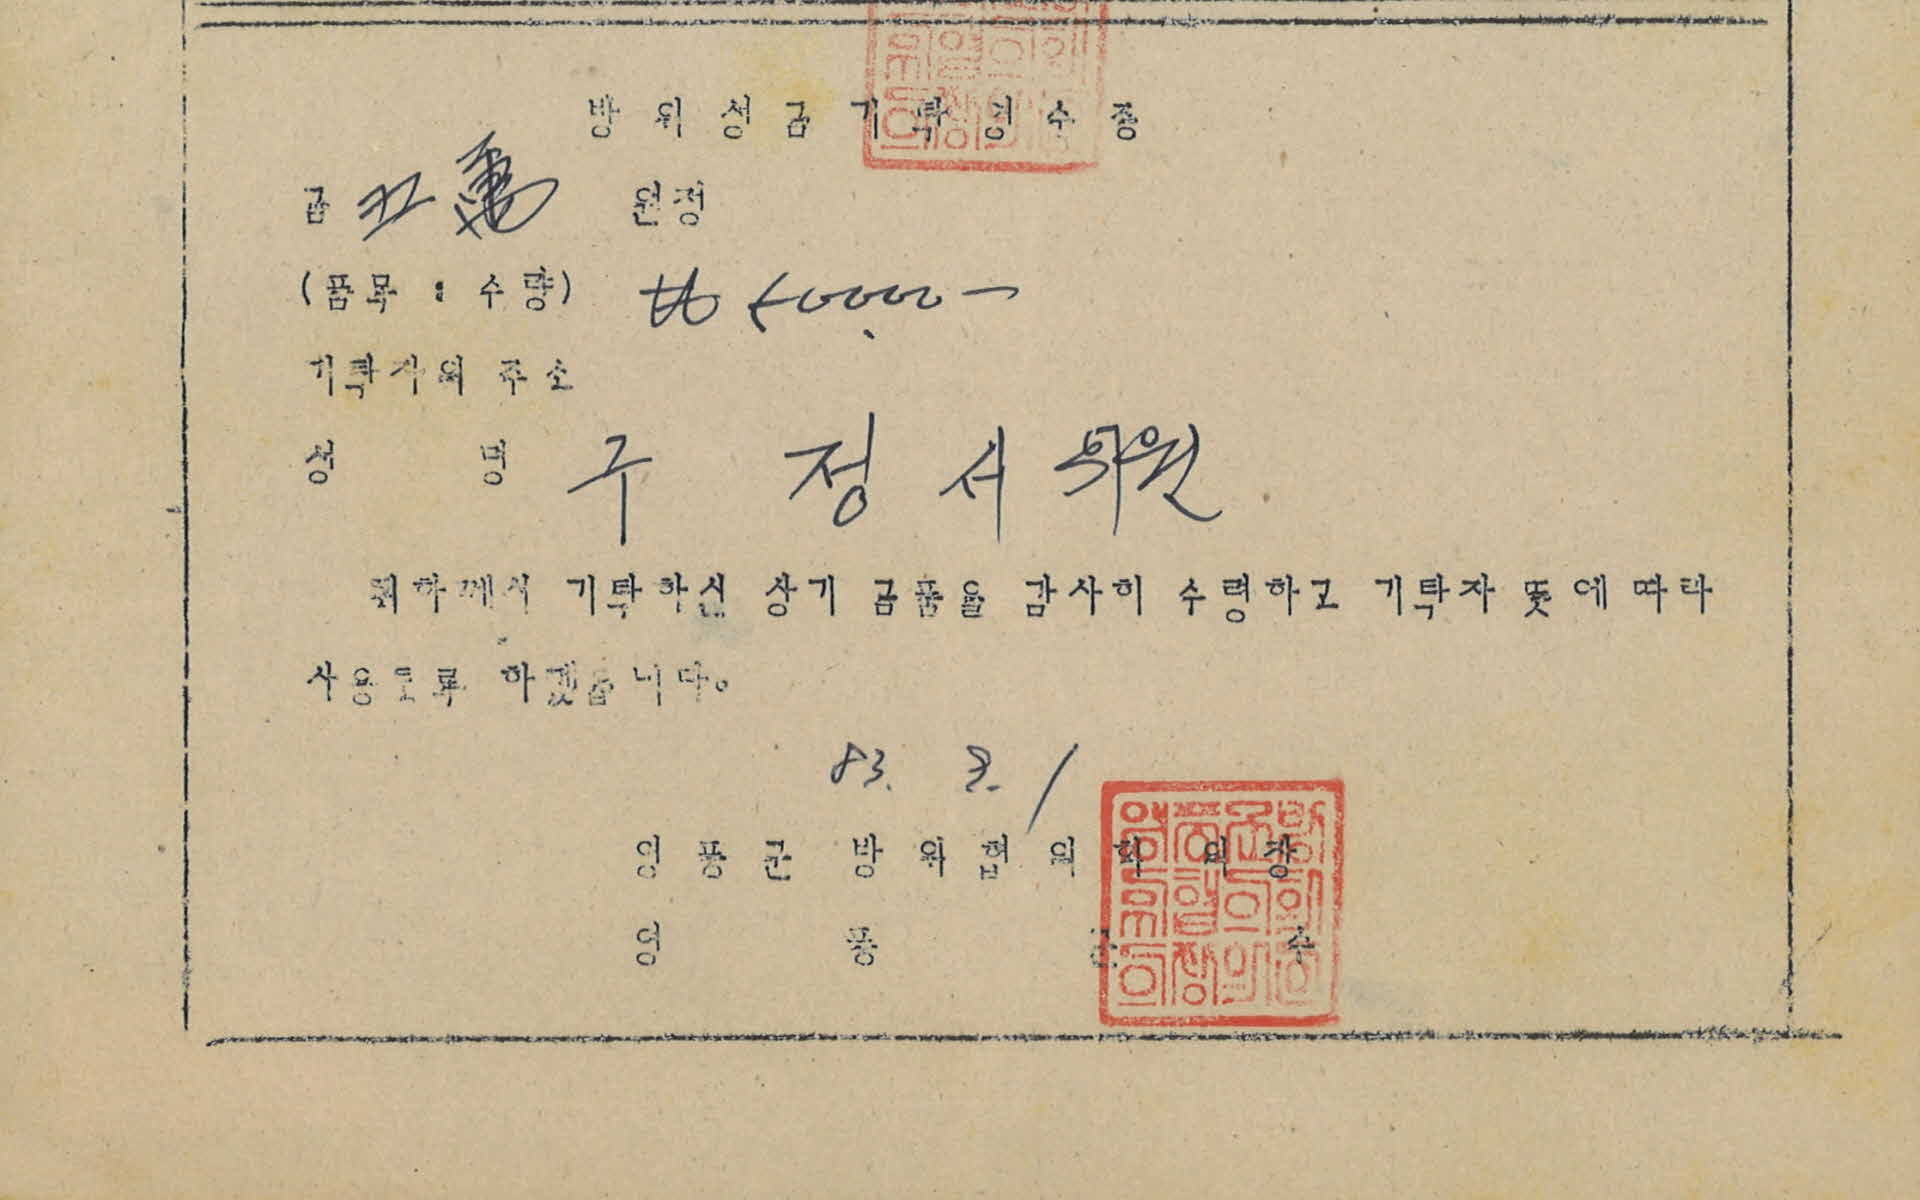 방위성금기탁영수증
금 五萬 원정
(품목 : 수량) ₩50,000-
기탁자의 주소
성 명 구정서의원
귀하께서 기탁하신 상기 금품을 감사히 수령하고 기탁자 뜻에 따라
사용토록 하겠읍니다。
83. 8. 1
영풍군 방위협의회 의장
영 풍 군 수